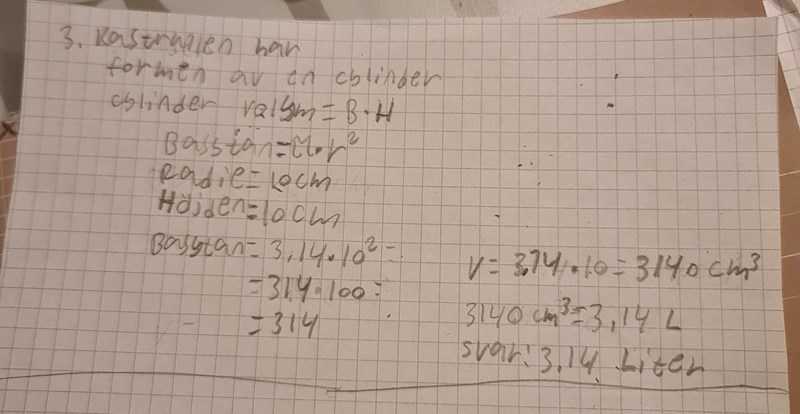 3. Kastrullen har
formen av en cylinder
cylinder volym = B·H
Basytan = π·r²
Radie = 10cm
Höjden = 10cm
Basytan = 3,14·10² =
= 3,14·100 =
= 314
V = 314·10 = 3140 cm³
3140 cm³ = 3,14 L
svar: 3,14 Liter